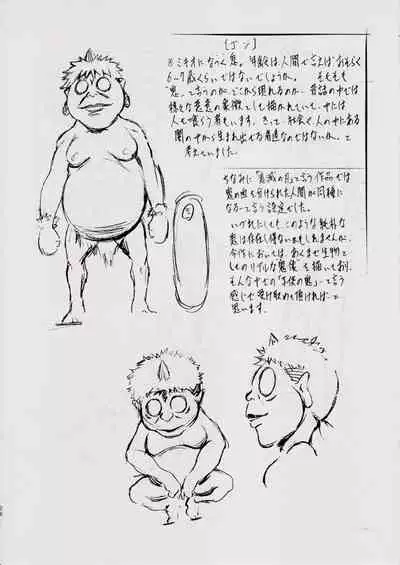 【エン】
※ミキオになつく鬼。年齢は人間で言えばおそらく
6〜7歳くらいではないでしょうか。そもそも
"鬼"と言うのがどこから現れるのか、昔話の中では
様々な
の象徴として描かれていて、中には
人も喰らう者もいます。きっと社会や人の中にある
闇の中から生まれ出せる
なのではないか、と
考えていました。
ちなみに「鬼滅の刃」と言う作品では
鬼の血を分けられた人間が同種に
なる…と言う設定でした。
いずれにしてもこのような
鬼は存在し得ないかもしれませんが、
今作においては、あくまで生物と
してのリアルな
を描いており、
そんな中での「子供の鬼」…と言う
感じで受け取めて頂ければ…と
思います。